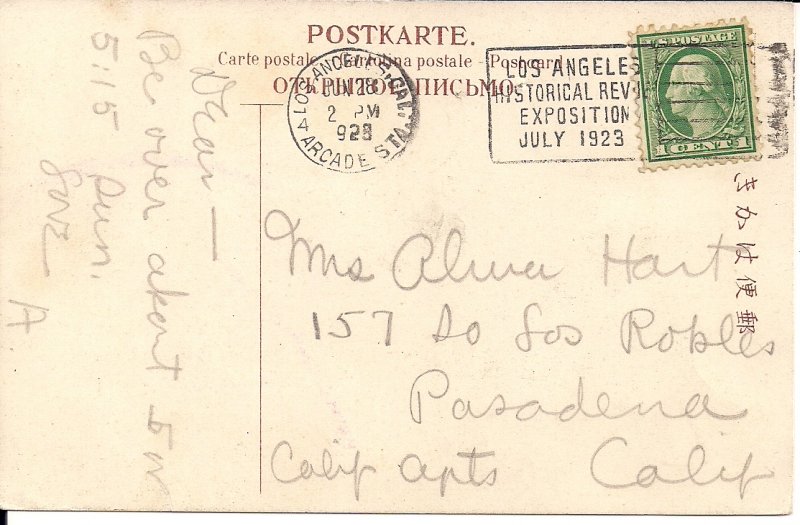 POSTKARTE.
Carte postale - Cartolina postale - Postcard
ОТКРЫТОЕ ПИСЬМО.
LOS ANGELES, CAL.
JUN 28
2 PM
ARCADE STA.
LOS ANGELES
HISTORICAL REVUE
EXPOSITION
JULY 1923
郵便はかき
Dear —
Be over about 5 or
5:15 Sun.
Love
A.
Mrs Alma Hart
157 So Los Robles
Pasadena
Calif Apts Calif